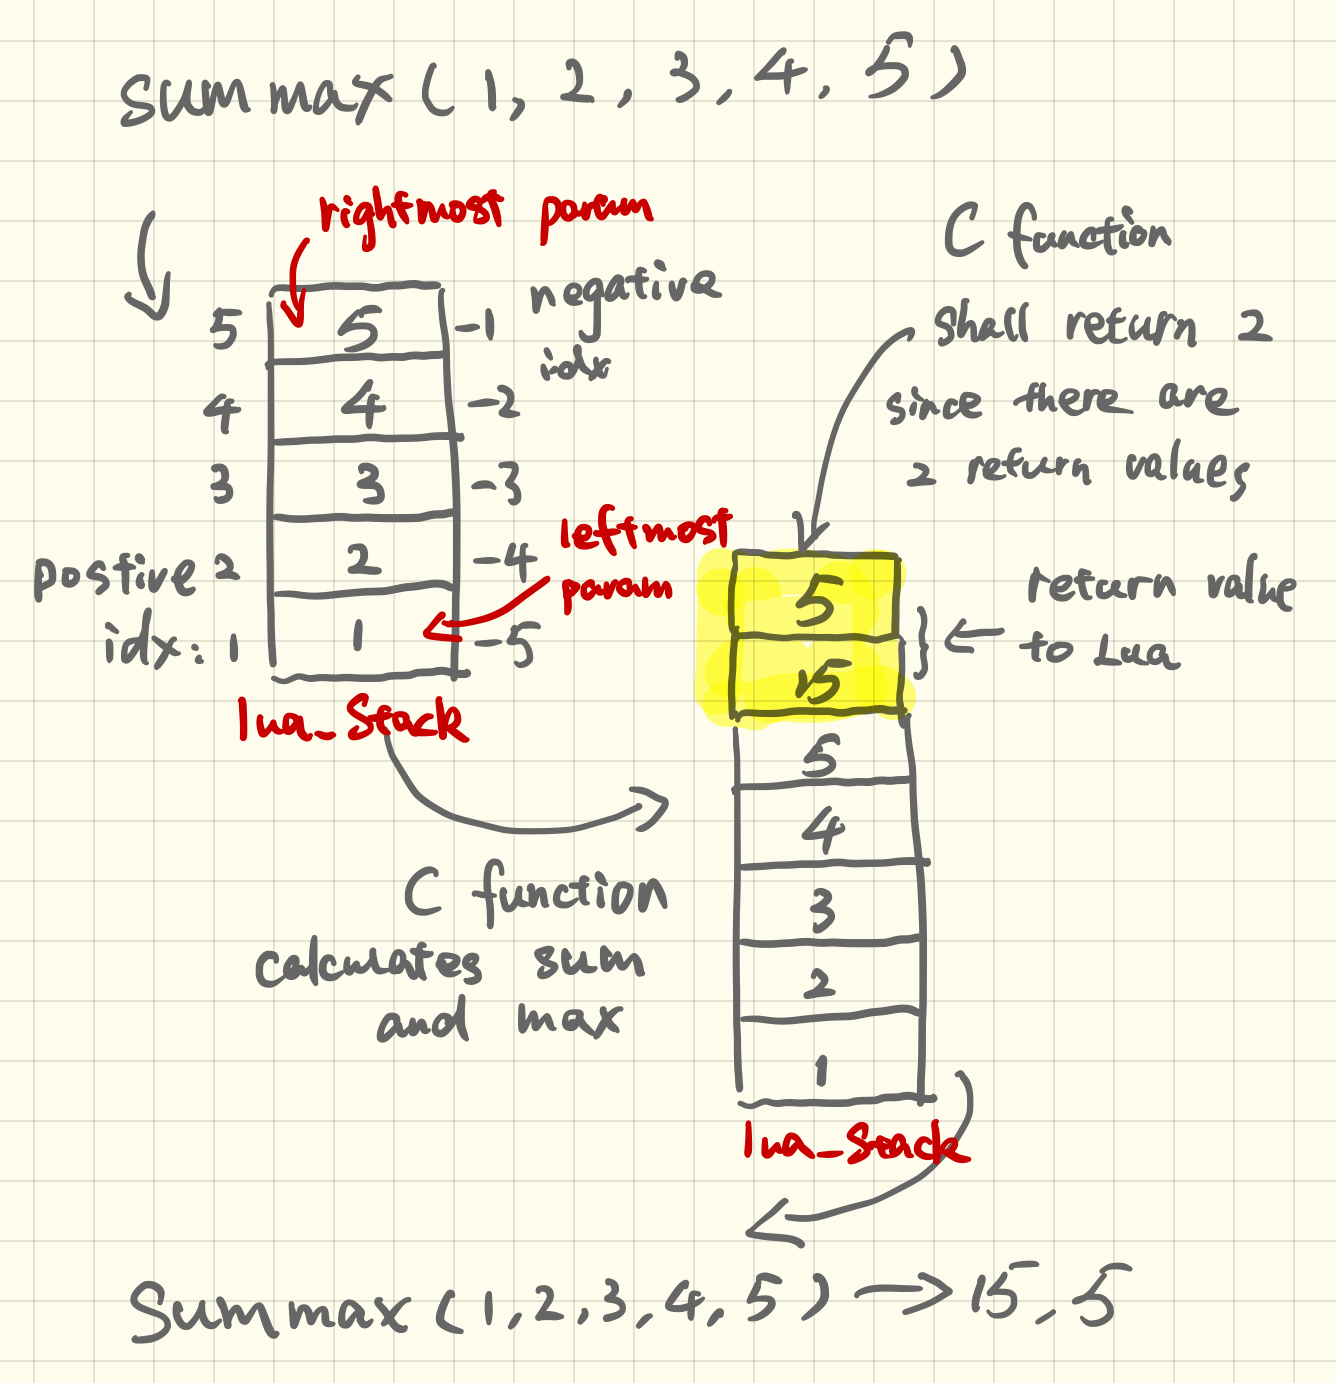 summax (1, 2, 3, 4, 5)
rightmost param
negative
idx
5 5 -1
4 4 -2
3 3 -3
postive 2 2 -4
idx: 1 1 -5
leftmost
param
lua_Stack
C function
calculates sum
and max
C function
shall return 2
since there are
2 return values
return value
to Lua
5
15
5
4
3
2
1
lua_Stack
Summax (1,2,3,4,5) → 15,5